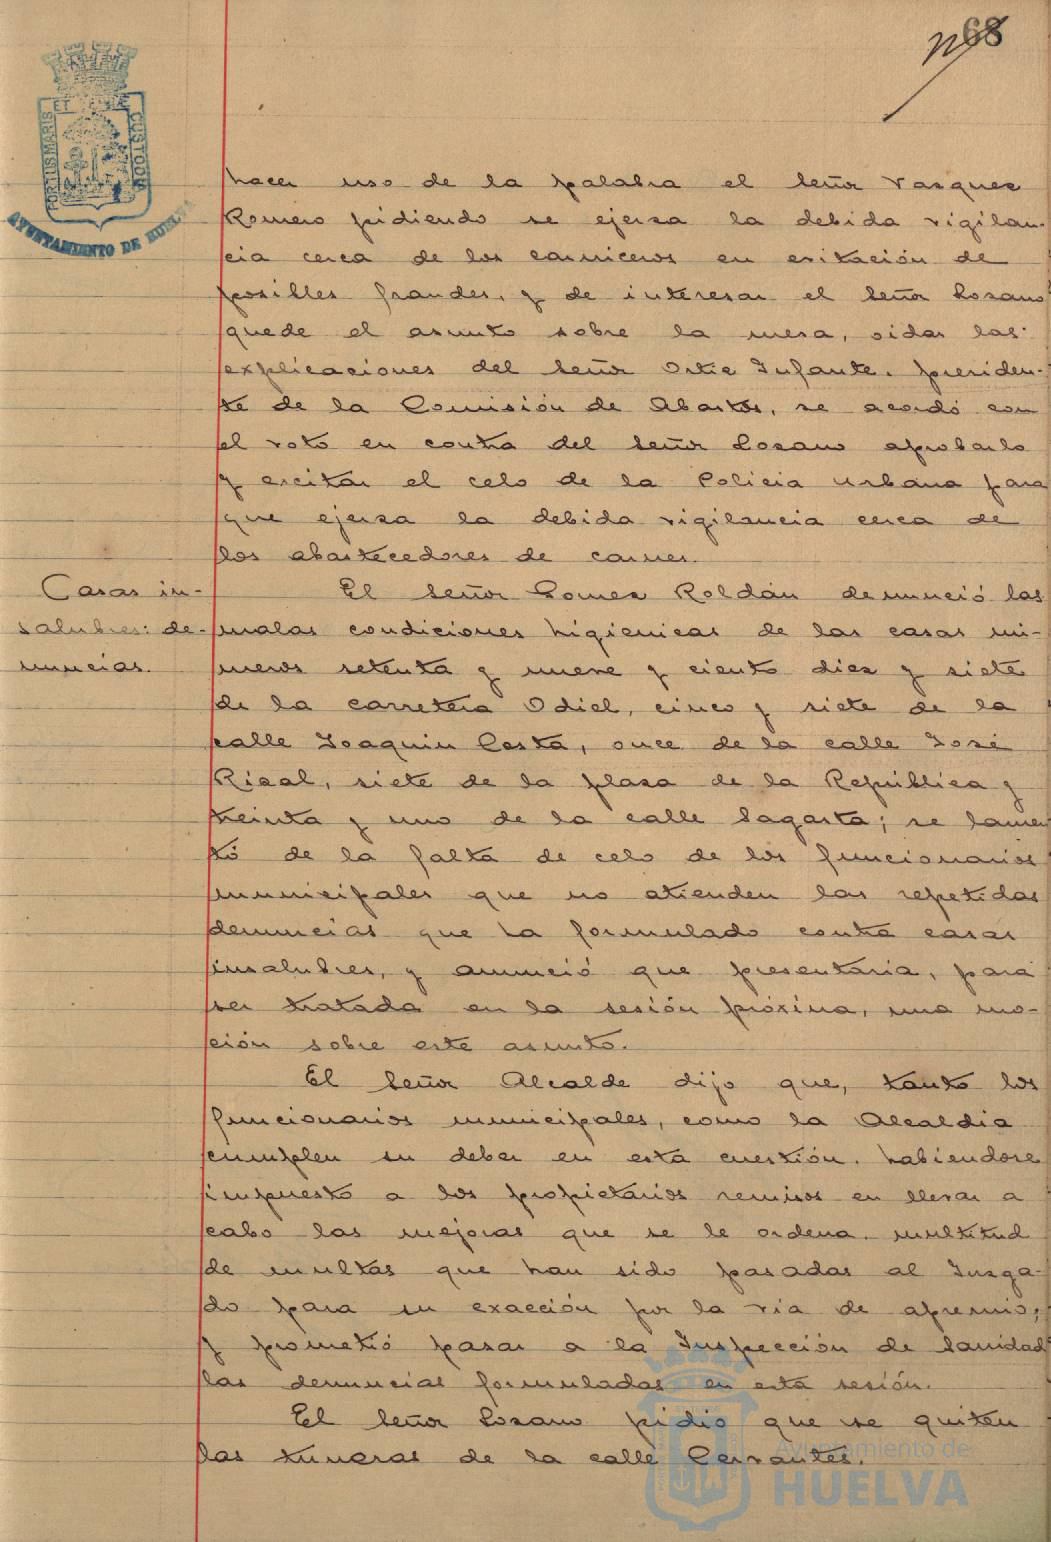 68
PORTUS MARIS ET TERRAE CUSTODIA
AYUNTAMIENTO DE HUELVA
hacer uso de la palabra el Señor Vazquez
Romero pidiendo se ejerza la debida vigilan-
cia cerca de los carniceros en evitación de
posibles fraudes, y de interesar el Señor Lozano
quede el asunto sobre la mesa, oidas las
explicaciones del Señor Ortiz Infante, Presiden-
te de la Comisión de Abastos, se acordó con
el voto en contra del Señor Lozano aprobarlo
y excitar el celo de la Policia Urbana para
que ejerza la debida vigilancia cerca de
los abastecedores de carnes.
Casas in-
salubres: de-
nuncias.
El Señor Gomez Roldán denunció las
malas condiciones higienicas de las casas nú-
meros setenta y nueve y ciento diez y siete
de la carretera Odiel, cinco y siete de la
calle Joaquin Costa, once de la calle José
Rizal, siete de la plaza de la República y
treinta y uno de la calle Sagasta; se lamen
tó de la falta de celo de los funcionarios
municipales que no atienden las repetidas
denuncias que ha formulado contra casas
insalubres, y anunció que presentaria, para
ser tratada en la sesión próxima, una mo-
ción sobre este asunto.
El Señor Alcalde dijo que, tanto los
funcionarios municipales, como la Alcaldia
cumplen su deber en esta cuestión, habiendose
impuesto a los propietarios remisos en llevar a
cabo las mejoras que se le ordena, multitud
de multas que han sido pasadas al Juzga-
do para su exacción por la via de apremio;
y prometió pasar a la Inspección de Sanidad
las denuncias formuladas en esta sesión.
El Señor Lozano pidió que se quiten
las tuneras de la calle Cervantes.
Ayuntamiento de
HUELVA